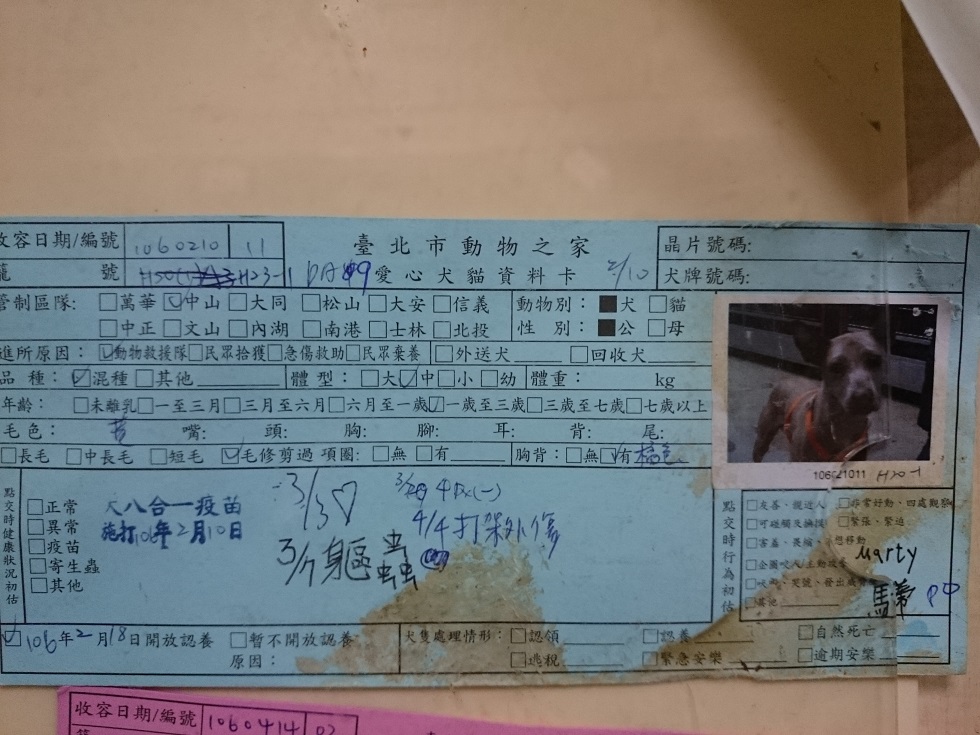 收容日期/編號 1060210 11
臺北市動物之家
晶片號碼:
號 H23-11
愛心犬貓資料卡 2/10
犬牌號碼:
管制區隊: □萬華 ☑中山 □大同 □松山 □大安 □信義
□中正 □文山 □內湖 □南港 □士林 □北投
動物別: ■犬 □貓
性別: ■公 □母
進所原因: ☑動物救援隊 □民眾拾獲 □急傷救助 □民眾棄養 □外送犬 □回收犬
品種: ☑混種 □其他 體型: □大 ☑中 □小 □幼 體重: kg
年齡: □未離乳 □一至三月 □三月至六月 □六月至一歲 ☑一歲至三歲 □三歲至七歲 □七歲以上
毛色: 嘴: 頭: 胸: 腳: 耳: 背: 尾:
□長毛 □中長毛 □短毛 ☑毛修剪過 項圈: □無 □有 胸背: □無 ☑有 橘色
106021011 H20-1
點交時健康狀況初估
□正常
□異常
□疫苗
□寄生蟲
□其他
犬八合一疫苗
施打106年2月10日
3/3♡
3/7 驅蟲
4Dx(-)
4/4 打架外傷
點交時行為初估
□友善、親近人 □非常好動、四處觀察
□可碰觸及撫摸 □緊張、緊迫
□害羞、畏縮、不想移動
□企圖咬人
□其他
Marty
馬蒂
☑106年2月18日開放認養 □暫不開放認養
原因:
犬隻處理情形: □認領 □認養 □自然死亡
□逃脫 □緊急安樂 □逾期安樂
收容日期/編號 1060414 02